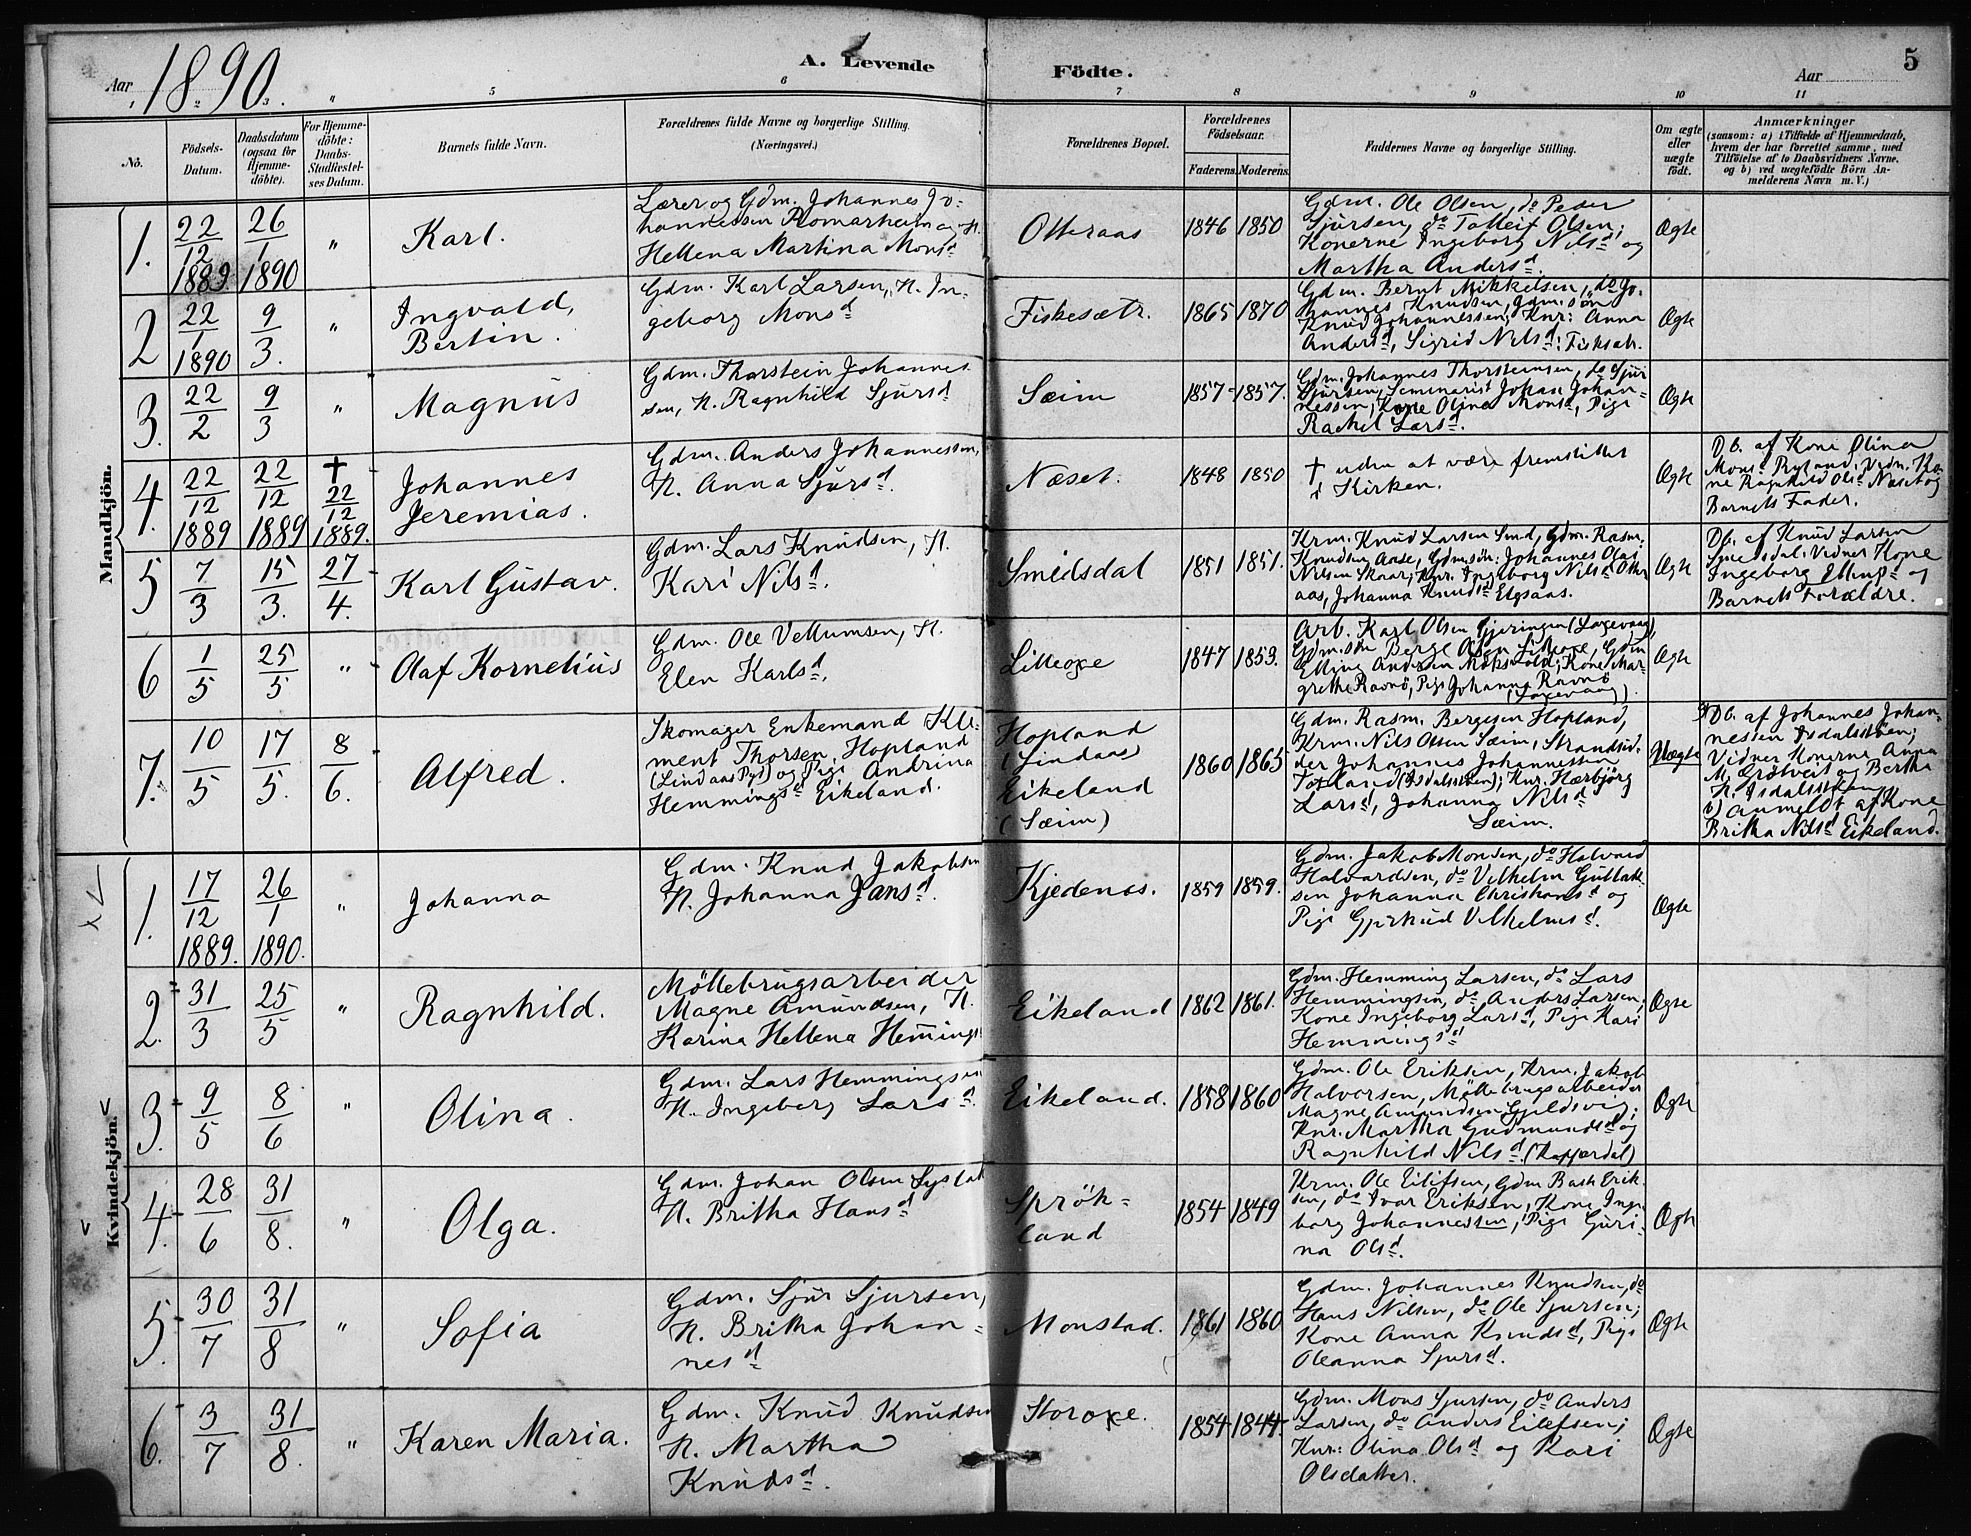 Aar 1890.
A. Levende
Födte.
Aar
5
1 2 3 " 5 6 7 8 9 10 11
No.
Födsels-
Datum.
Daabsdatum
(ogsaa for
Hjemme-
döbte).
For Hjemme-
döbte:
Daabs-
Stadfæstel-
ses Datum.
Barnets fulde Navn.
Forældrenes fulde Navne og borgerlige Stilling.
(Næringsvei.)
Forældrenes Bopæl.
Forældrenes
Födselsaar.
Faderens. Moderens.
Faddernes Navne og borgerlige Stilling.
Om ægte
eller
uægte
født.
Anmærkninger
(saasom: a) i Tilfælde af Hjemmedaab,
hvem der har forrettet samme, med
Tilföielse af to Daabsvidners Navne,
og b) ved uægtefödte Börn An-
melderens Navn m. V.)
Mandkjön.
1.
22/12 1889.
26/1 1890
"
Karl.
Lærer og Gdm. Johannes Jo-
hannessen Romarheim og H.
Hellena Martina Monsd
Otteraas
1846 1850
Gdm. Ole Olsen, do Peder
Sjursen, do Tolleif Olsen;
Konerne Ingeborg Nilsd og
Martha Andersd.
Ægte
2
22/1 1890
9/3.
"
Ingvald,
Bertin.
Gdm. Karl Larsen, H. In-
geborg Monsd
Fiskesætr.
1865 1870
Gdm. Bernt Mikkelsen, do Jo-
hannes Knudsen, Gdm.sön
Knud Johannessen; Knr: Anna
Andersd, Sigrid Nilsd, Fisksætr.
Ægte
3.
22/2
9/3
"
Magnus
Gdm. Thorstein Johannes-
sen, H. Ragnhild Sjursd
Sæim
1857 1857.
Gdm. Johannes Thorsteinsen, do Sjur
Sjursen, Seminarist Johan Johan-
nessen, Kone Olina Monsd, Pige
Rachel Larsd.
Ægte
4.
22/12 1889
22/12 1889
† 22/12 1889.
Johannes
Jeremias.
Gdm. Anders Johannessen,
H. Anna Sjursd.
Næset.
1848 1850
† uden at være fremstillet
i Kirken.
Ægte
Db. af Kone Olina
Monsd Rylan. Vidn. Ko-
ne Ragnhild Olsd Næset og
Barnets Fader.
5
7/3
15/3.
27/4.
Karl Gustav.
Gdm. Lars Knudsen, H.
Kari Nilsd.
Smidsdal
1851 1851.
Krm. Knud Larsen Smd, Gdm. Rasm.
Knudsen Aase, Gdmsön. Johannes Olai
Nilsen Skaar; Knr. Ingeborg Nilsd Otter
aas, Johanna Knudsd Elgsaas.
Ægte
Db. af Knud Larsen
Smedsdal. Vidner Kone
Ingeborg Ellingsd og
Barnets Forældre.
6
1/5
25/5
"
Olaf Kornelius
Gdm. Ole Vellumsen, H.
Elen Karlsd.
Lilleoxe
1847 1853.
Arb. Karl Olsen Gjeringen (Laxevaag),
Gdmsön Berge Olsen Lilleoxe, Gdm
Elling Andersen Mopsvold; Kone Mar-
grethe Ravnö, Pige Johanna Ravnö
(Laxevaag).
Ægte
7.
10/5
17/5.
8/6.
Alfred.
Skomager Enkemand Kle-
ment Thorsen, Hopland
(Lindaas Pgl) og Pige Andrina
Hemmingsd Eikeland.
Hopland
(Lindaas)
Eikeland
(Sæim)
1860 1865
Gdm. Rasm. Bergesen Hopland,
Krm. Nils Olsen Sæim, Strandsid-
der Johannes Johannessen
(Isdalsstöen); Knr. Hærbjörg
Larsd, Johanna Nilsd
Sæim.
Uægte
Db. af Johannes Johan-
nessen Isdalsstöen;
Vidner Konerne Anna
M. Grötveit og Bertha
H. Isdalsstöen
b) Anmeldt af Kone
Britha Nilsd Eikeland.
Kvindekjön.
1.
17/12 1889.
26/1 1890.
"
Johanna
Gdm. Knud Jakobsen
H. Johanna Jansd.
Kjedenes.
1859 1859.
Gdm. Jakob Monsen, do Halvard
Halvardsen, do Vilhelm Gullak-
sen Johanna Christiansd og
Pige Gjertrud Vilhelmsd.
Ægte
2.
31/3
25/5
"
Ragnhild.
Möllebrugsarbeider
Magne Amundsen, H.
Karina Hellena Hemings
Eikeland
1862 1861.
Gdm. Hemming Larsen, do Lars
Hemmingsen, do Anders Larsen;
Kone Ingeborg Larsd, Pige Kari
Hemmingsd
Ægte
3.
9/5
8/6
"
Olina.
Gdm. Lars Hemmingsen
H. Ingeberg Larsd.
Eikeland.
1858 1860
Gdm. Ole Eriksen, Krm. Jakob
Halvorsen, Möllebrugsarbeider
Magne Amundsen Gjeldsvig;
Knr. Martha Gudmundsd og
Ragnhild Nilsd.
Ægte
4.
28/6
31/8.
"
Olga.
Gdm. Johan Olsen
H. Britha Hansd
Spröke-
land
1854 1849
Krm. Ole Eilifsen, Gdm Erik-
sen, do Ivar Eriksen, Kone Inge
borg Johannessen, Pige Guri-
na Olsd.
Ægte
5.
30/7
31/8
"
Sofia
Gdm. Sjur Sjursen,
H. Britha Johan-
nesd
Monstad.
1861 1860
Gdm. Johannes Knudsen, do
Hans Nilsen, do Ole Sjursen;
Kone Anna Knudsd, Pige
Oleanna Sjursd.
Ægte
6.
3/7
31/8.
"
Karen Maria.
Gdm. Knud Knudsen
H. Martha
Knudsd.
Storoxe.
1854 1844.
Gdm. Mons Sjursen, do Anders
Larsen, do Anders Eilefsen;
Knr: Olina Olsd og Kari
Olsdatter.
Ægte